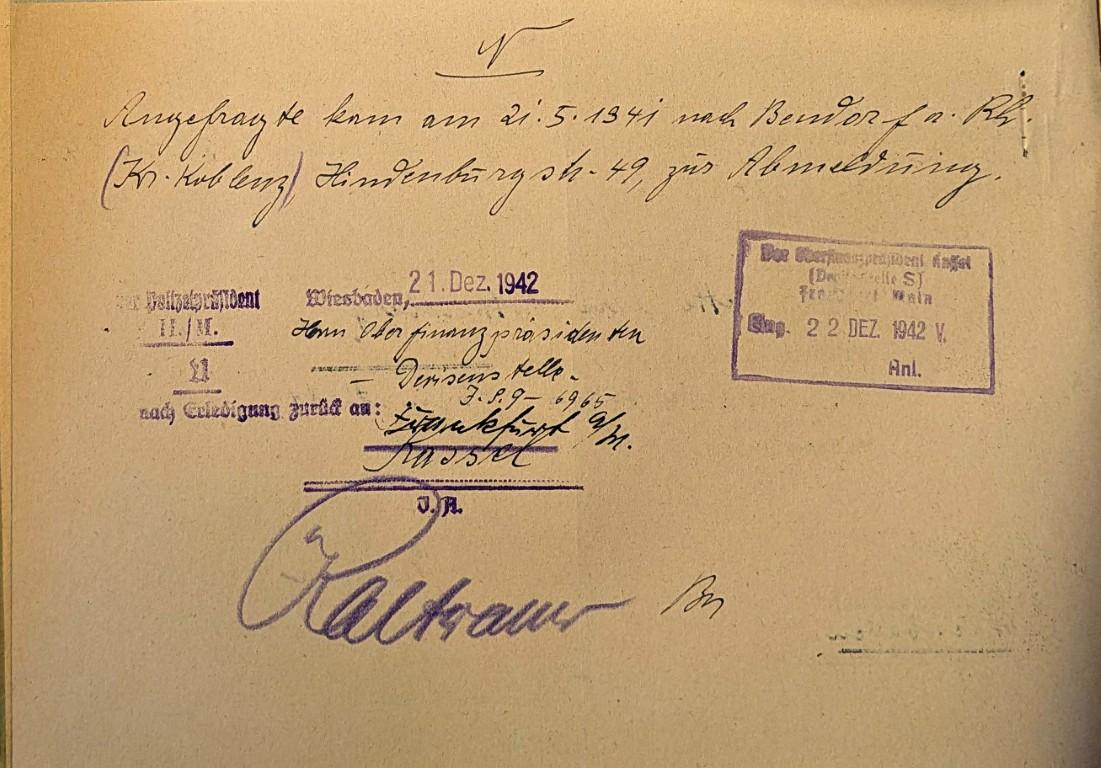 N
Angefragte kam am 21.5.1941 nach Bendorf a. Rh.
(Kr. Koblenz) Hindenburgstr. 49, zur Abmeldung.
Der Oberfinanzpräsident Kassel
(Devisenstelle S)
Frankfurt Main
Eing. 22 DEZ. 1942 V.
Anl.
Der Polizeipräsident
II./M.
Wiesbaden, 21. Dez. 1942
Herrn Oberfinanzpräsidenten
U
– Devisenstelle –
J.S.9 – 6965
nach Erledigung zurück an:
Frankfurt a/M.
Kassel
J. A.